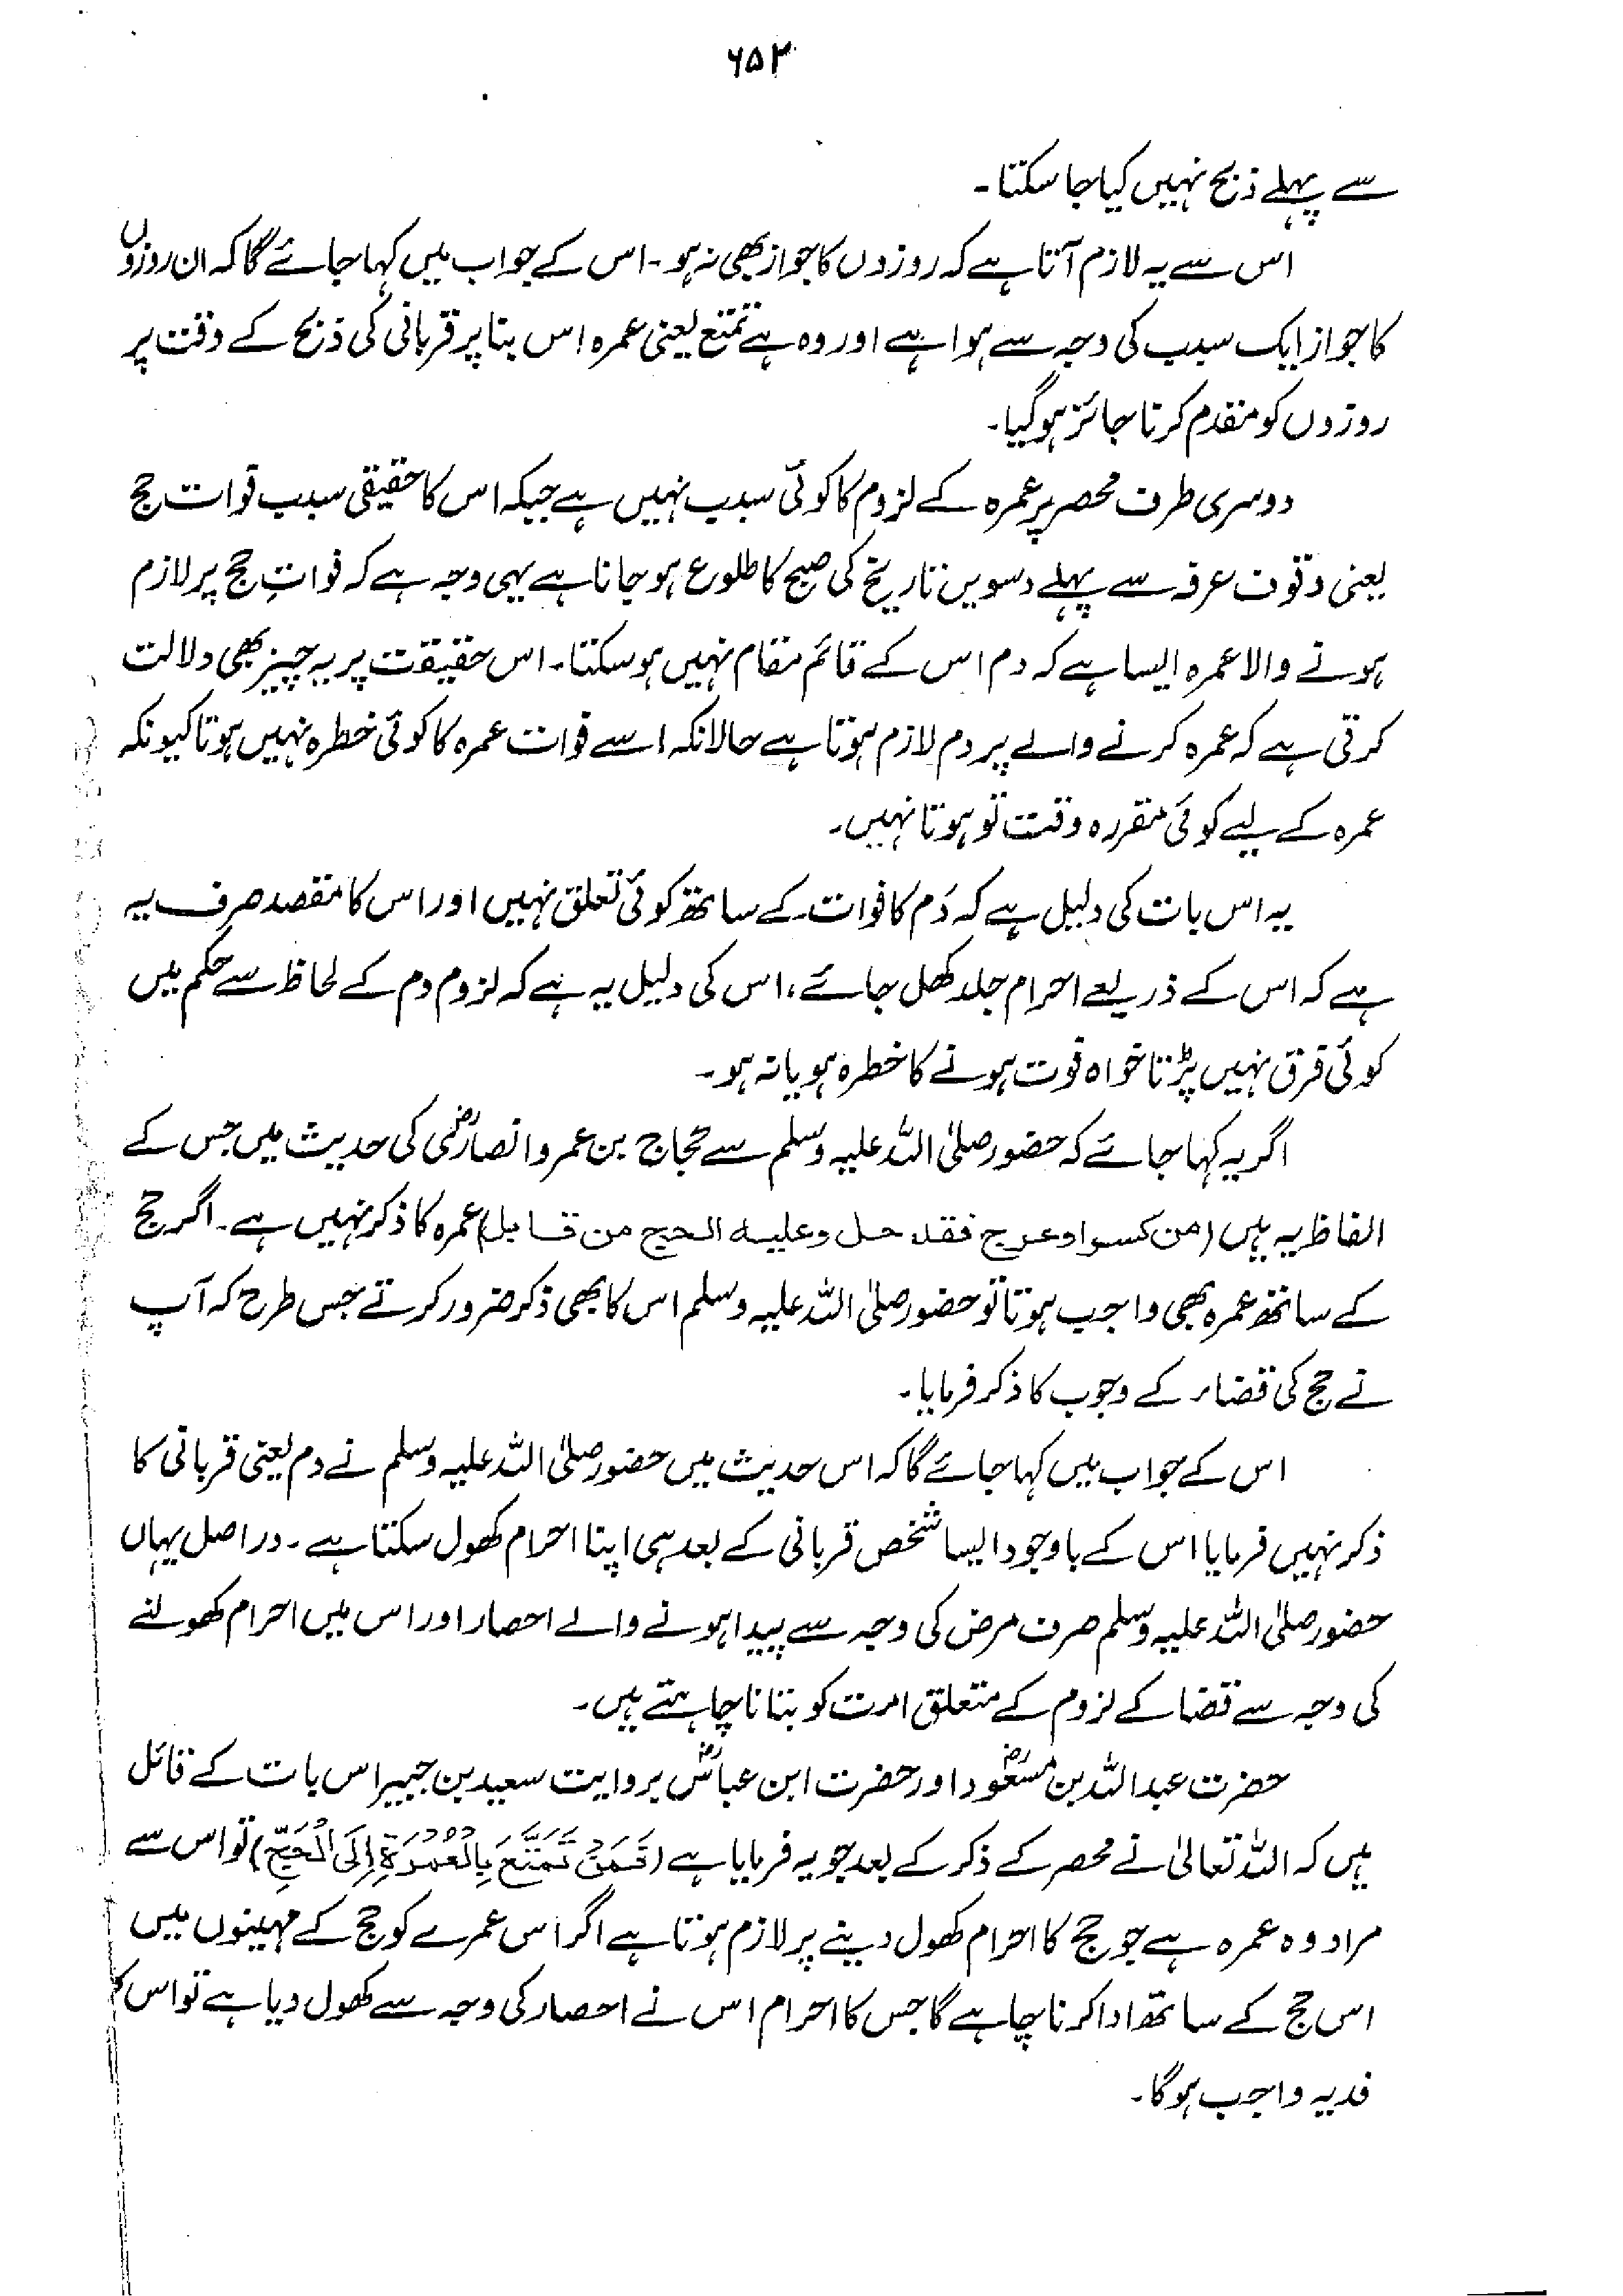 ۶۵۲
سے پہلے ذبح نہیں کیا جا سکتا۔
اس سے یہ لازم آتا ہے کہ روزوں کا جواز بھی نہ ہو۔ اس کے جواب میں کہا جائے گا کہ ان روزوں
کا جواز ایک سبب کی وجہ سے ہوا ہے اور وہ ہے تمتع یعنی عمرہ اس بنا پر قربانی کی ذبح کے وقت پر
روزوں کو مقدم کرنا جائز ہو گیا۔
دوسری طرف محصر پر عمرہ کے لزوم کا کوئی سبب نہیں ہے جبکہ اس کا حقیقی سبب فوات حج
یعنی وقوف عرفہ سے پہلے دسویں تاریخ کی صبح کا طلوع ہو جانا ہے یہی وجہ ہے کہ فواتِ حج پر لازم
ہونے والا عمرہ ایسا ہے کہ دم اس کے قائم مقام نہیں ہو سکتا۔ اس حقیقت پر یہ چیز بھی دلالت
کرتی ہے کہ عمرہ کرنے والے پر دم لازم ہوتا ہے حالانکہ اسے فوات عمرہ کا کوئی خطرہ نہیں ہوتا کیونکہ
عمرہ کے لیے کوئی مقررہ وقت تو ہوتا نہیں۔
یہ اس بات کی دلیل ہے کہ دَم کا فوات کے ساتھ کوئی تعلق نہیں اور اس کا مقصد صرف یہ
ہے کہ اس کے ذریعے احرام جلد کھل جائے، اس کی دلیل یہ ہے کہ لزوم دم کے لحاظ سے حکم میں
کوئی فرق نہیں پڑتا خواہ فوت ہونے کا خطرہ ہو یا نہ ہو۔
اگر یہ کہا جائے کہ حضور صلی اللہ علیہ وسلم سے حجاج بن عمرو انصاریؓ کی حدیث میں جس کے
الفاظ یہ ہیں (من کسر او عرج فقد حل وعلیہ الحج من قابل) عمرہ کا ذکر نہیں ہے۔ اگر حج
کے ساتھ عمرہ بھی واجب ہوتا تو حضور صلی اللہ علیہ وسلم اس کا بھی ذکر ضرور کرتے جس طرح کہ آپ
نے حج کی قضاء کے وجوب کا ذکر فرمایا۔
اس کے جواب میں کہا جائے گا کہ اس حدیث میں حضور صلی اللہ علیہ وسلم نے دم یعنی قربانی کا
ذکر نہیں فرمایا اس کے باوجود ایسا شخص قربانی کے بعد ہی اپنا احرام کھول سکتا ہے۔ دراصل یہاں
حضور صلی اللہ علیہ وسلم صرف مرض کی وجہ سے پیدا ہونے والے احصار اور اس میں احرام کھولنے
کی وجہ سے قضا کے لزوم کے متعلق امت کو بتانا چاہتے ہیں۔
حضرت عبداللہ بن مسعودؓ اور حضرت ابن عباسؓ بروایت سعید بن جبیر اس بات کے قائل
ہیں کہ اللہ تعالیٰ نے محصر کے ذکر کے بعد جو یہ فرمایا ہے (فَمَنْ تَمَتَّعَ بِالْعُمْرَةِ إِلَى الْحَجِّ) تو اس سے
مراد وہ عمرہ ہے جو حج کا احرام کھول دینے پر لازم ہوتا ہے اگر اس عمرے کو حج کے مہینوں میں
اس حج کے ساتھ ادا کرنا چاہے گا جس کا احرام اس نے احصار کی وجہ سے کھول دیا ہے تو اس کا
فدیہ واجب ہوگا۔